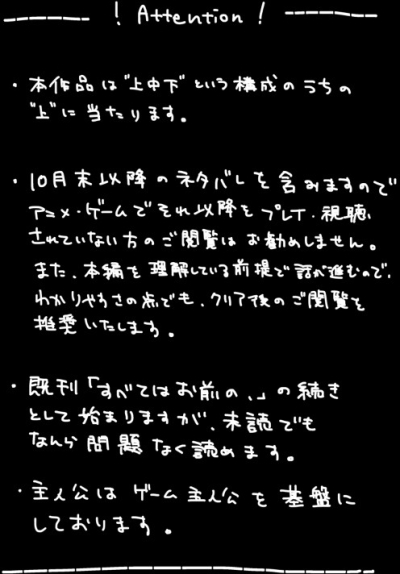 ! Attention !
・本作品は"上中下"という構成のうちの
"上"に当たります。
・10月末以降のネタバレを含みますので
アニメ・ゲームでそれ以降をプレイ・視聴
されていない方のご閲覧はお勧めしません。
また、本編を理解している前提で話が進むので、
わかりやすさの点でも、クリア後のご閲覧を
推奨いたします。
・既刊「すべてはお前の、」の続き
として始まりますが、未読でも
なんら問題なく読めます。
・主人公はゲーム主人公を基盤に
しております。